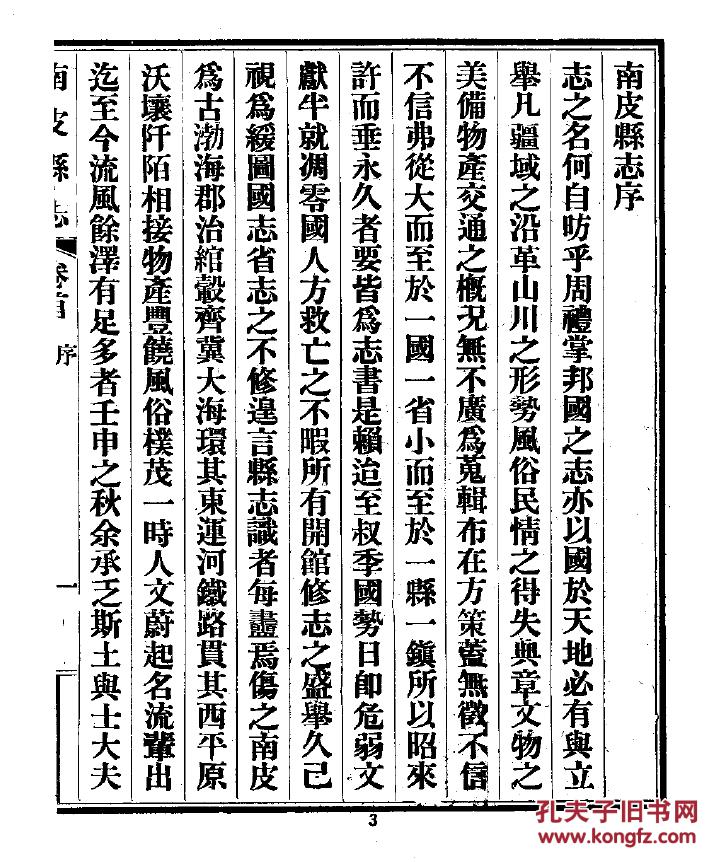 南皮縣志序
志之名何自昉乎周禮掌邦國之志亦以國於天地必有與立
舉凡疆域之沿革山川之形勢風俗民情之得失典章文物之
美備物產交通之概況無不廣爲蒐輯布在方策蓋無徵不信
不信弗從大而至於一國一省小而至於一縣一鎭所以昭來
許而垂永久者要皆爲志書是賴迨至叔季國勢日卽危弱文
獻半就凋零國人方救亡之不暇所有開館修志之盛舉久已
視爲緩圖國志省志之不修遑言縣志識者每盡焉傷之南皮
爲古渤海郡治綰轂齊冀大海環其東運河鐵路貫其西平原
沃壤阡陌相接物產豐饒風俗樸茂一時人文蔚起名流輩出
迄至今流風餘澤有足多者壬申之秋余承乏斯土與士大夫
南皮縣志 卷首 序 一
3
孔夫子旧书网
www.kongfz.com